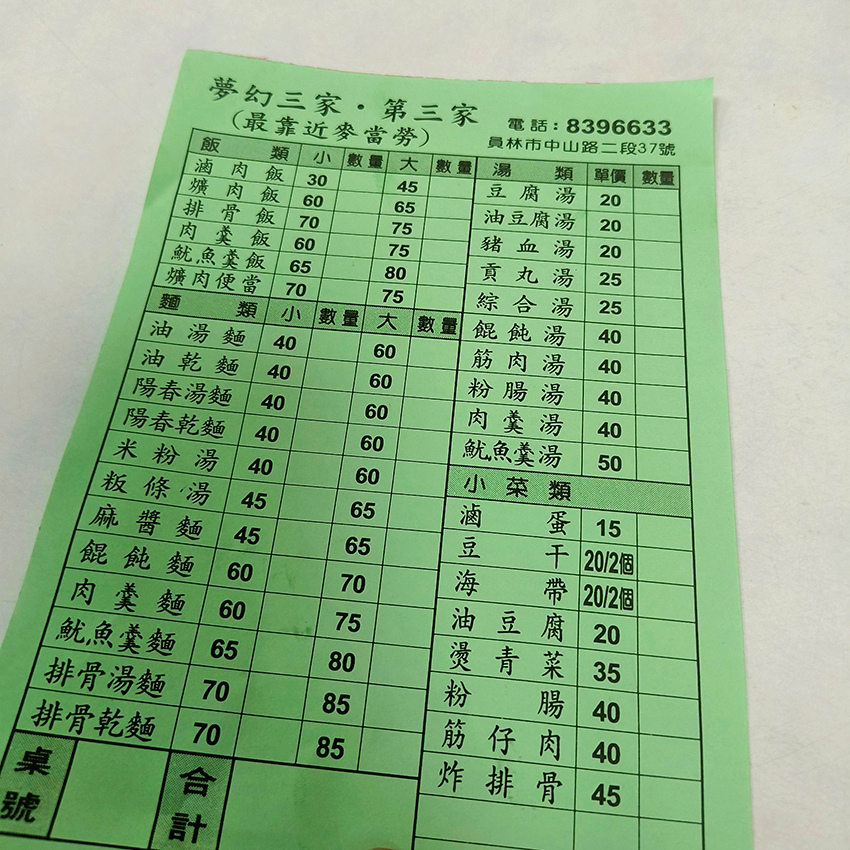 夢幻三家・第三家
(最靠近麥當勞)
電話:8396633
員林市中山路二段37號
飯類 小 數量 大 數量
滷肉飯 30 45
爌肉飯 60 65
排骨飯 70 75
肉羹飯 60 75
魷魚羹飯 65 80
爌肉便當 70 75
麵類 小 數量 大 數量
油湯麵 40 60
油乾麵 40 60
陽春湯麵 40 60
陽春乾麵 40 60
米粉湯 40 60
粄條湯 45 65
麻醬麵 45 65
餛飩麵 60 70
肉羹麵 60 75
魷魚羹麵 65 80
排骨湯麵 70 85
排骨乾麵 70 85
桌號
合計
湯類 單價 數量
豆腐湯 20
油豆腐湯 20
豬血湯 20
貢丸湯 25
綜合湯 25
餛飩湯 40
筋肉湯 40
粉腸湯 40
肉羹湯 40
魷魚羹湯 50
小菜類
滷蛋 15
豆干 20/2個
海帶 20/2個
油豆腐 20
燙青菜 35
粉腸 40
筋仔肉 40
炸排骨 45